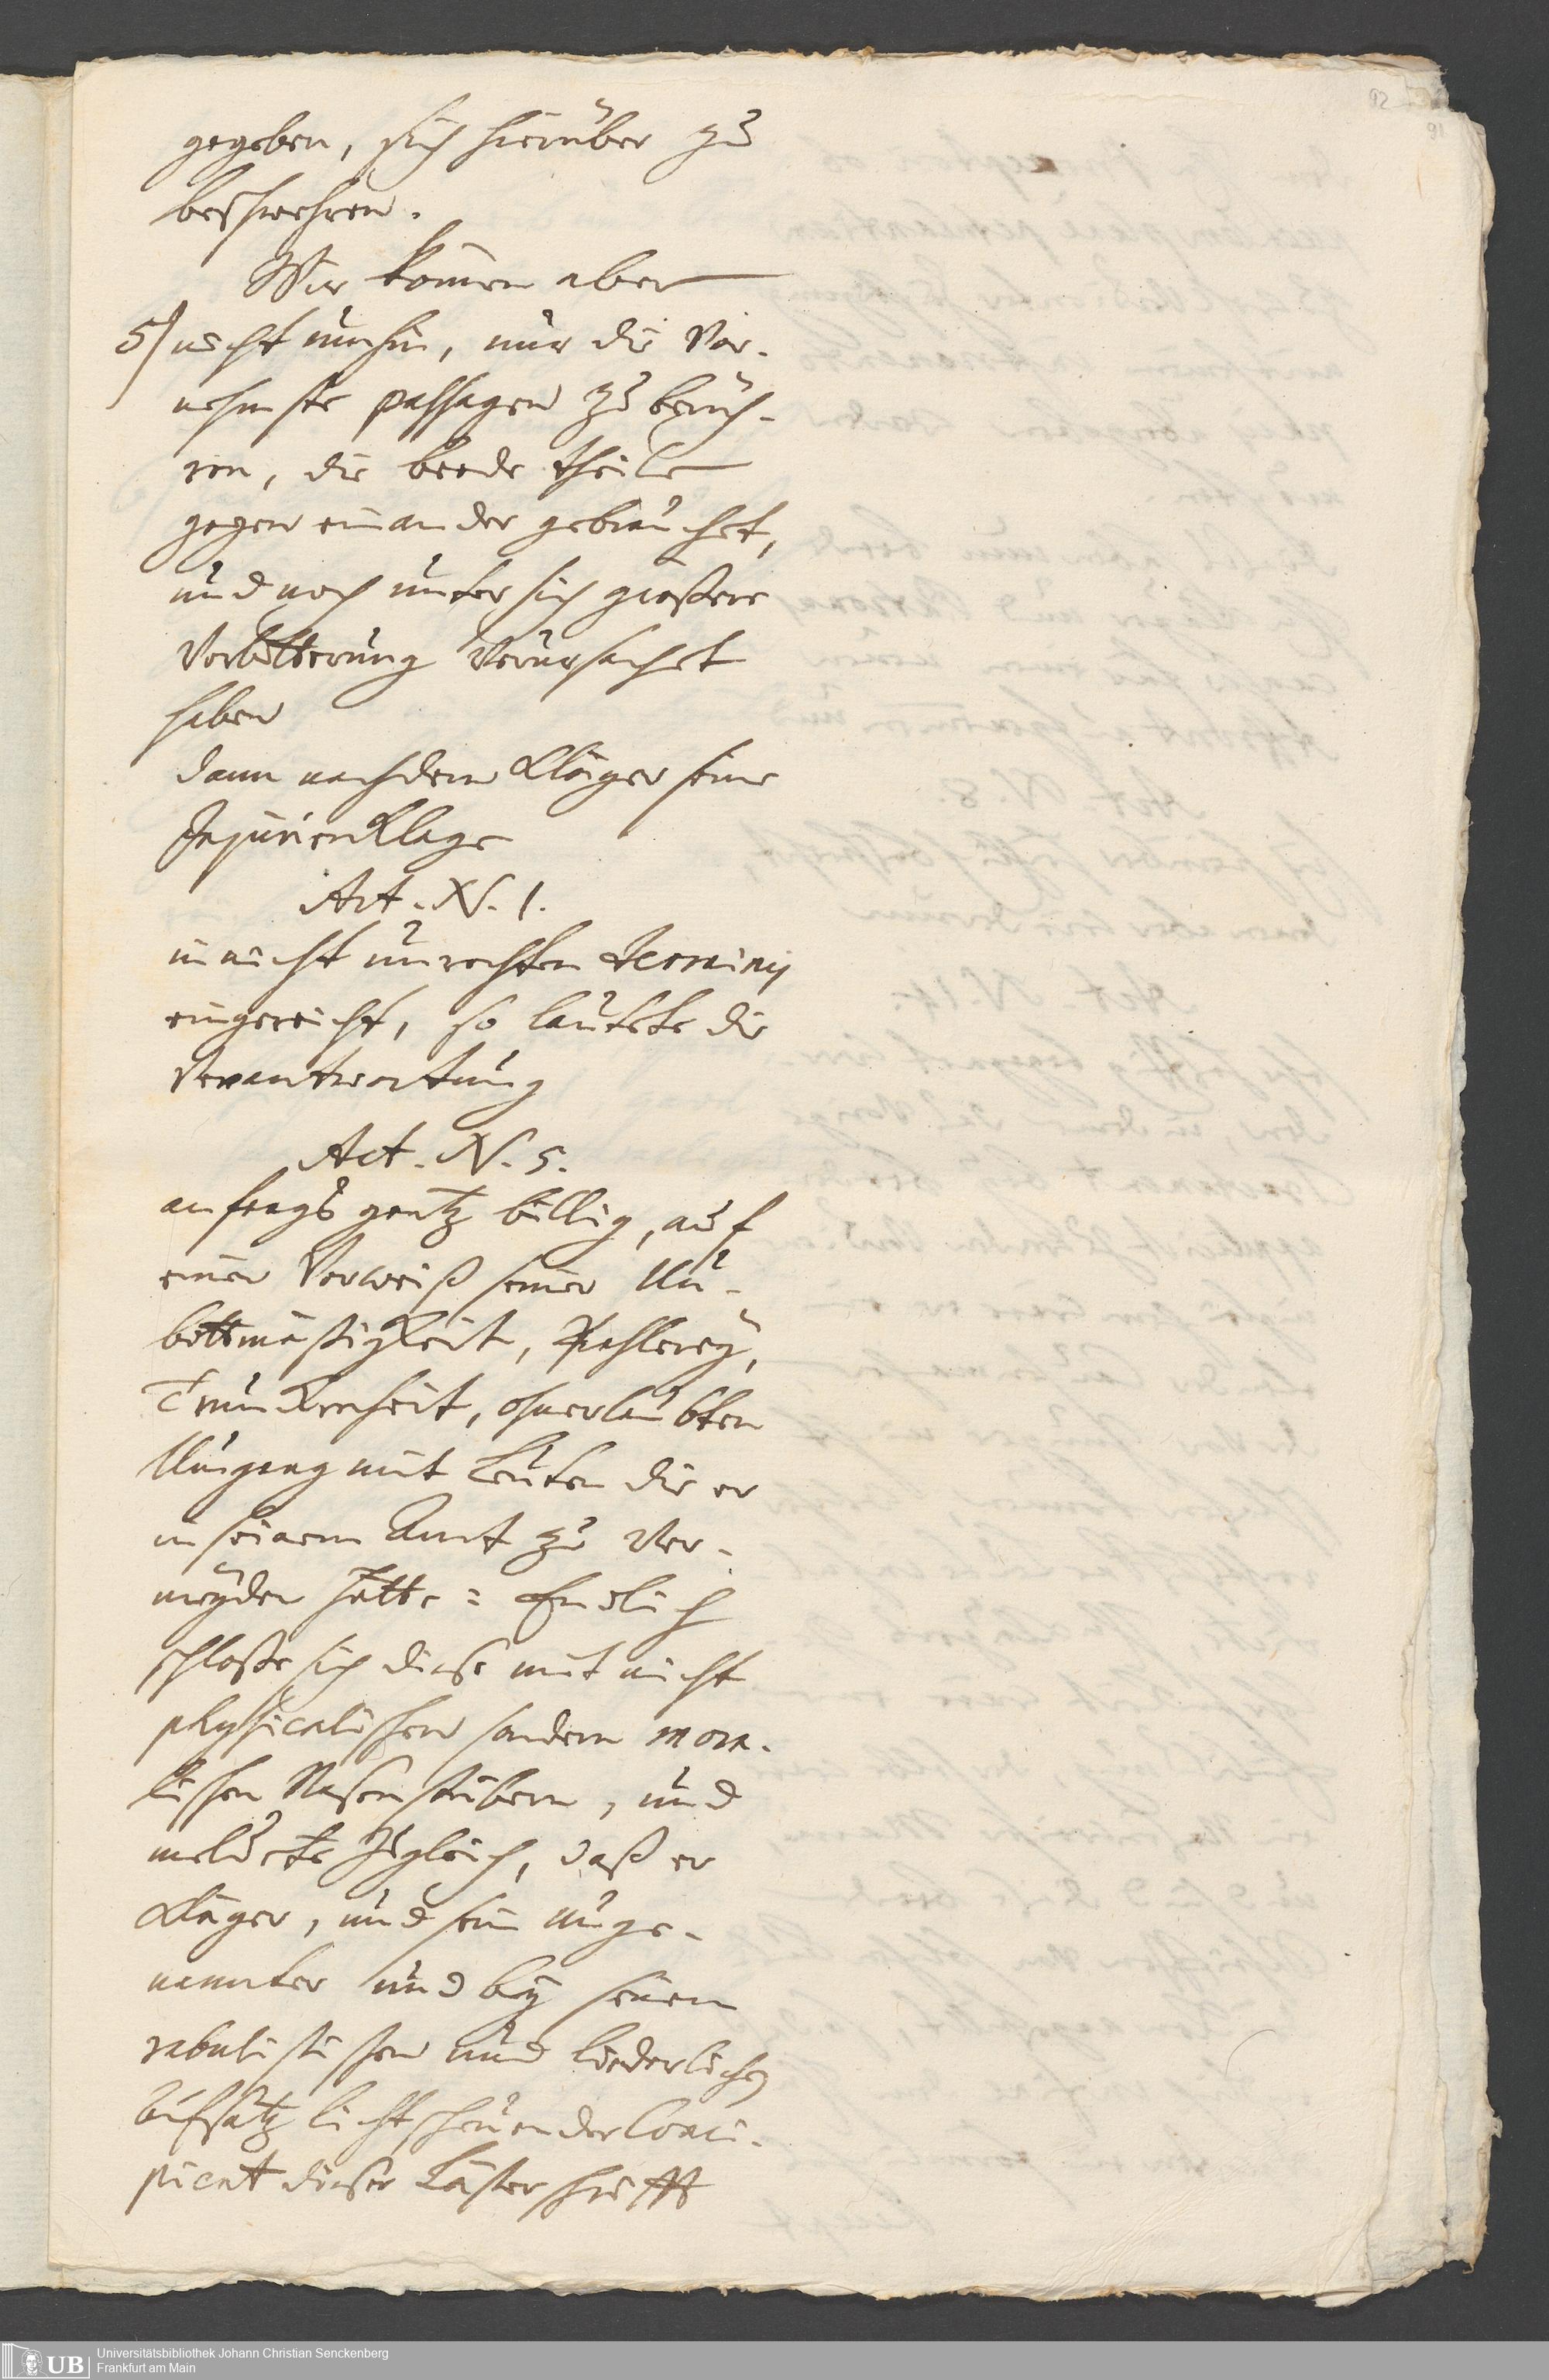 92
91
gegeben, sich hierüber zu
beschwehren.
Wir können aber
5) nicht umhin, nur die Vor-
nehmste passagen zu berüh-
ren, die beede theile
gegen einander gebrauchet,
und noch unter sich größere
Verbitterung Verursachet
haben
dann nachdem Kläger seine
Injurien Klage
Act. N. 1.
in nicht unrechten terminis
eingereicht, so lautete die
Verantwortung
Act. N. 5.
anfangs gantz billig, auf
einen Verweiß seiner Un-
bottmäßigkeit, Prahlerey,
Trunkenheit, ohnerlaubten
Umgang mit Leuten die er
in seinem Amt zu Ver-
meyden hätte: Endlich
schloße sich diese mit nicht
physicalischen sondern mora-
lischen Nasenstübern, und
meldete zugleich, daß er
Kläger, und sein unge-
nannter und bey seinem
rabulistischen und liederlichen
Aufsatz lichtscheuender Conci-
pient dieser Lästerschrifft
Universitätsbibliothek Johann Christian Senckenberg
Frankfurt am Main
UB